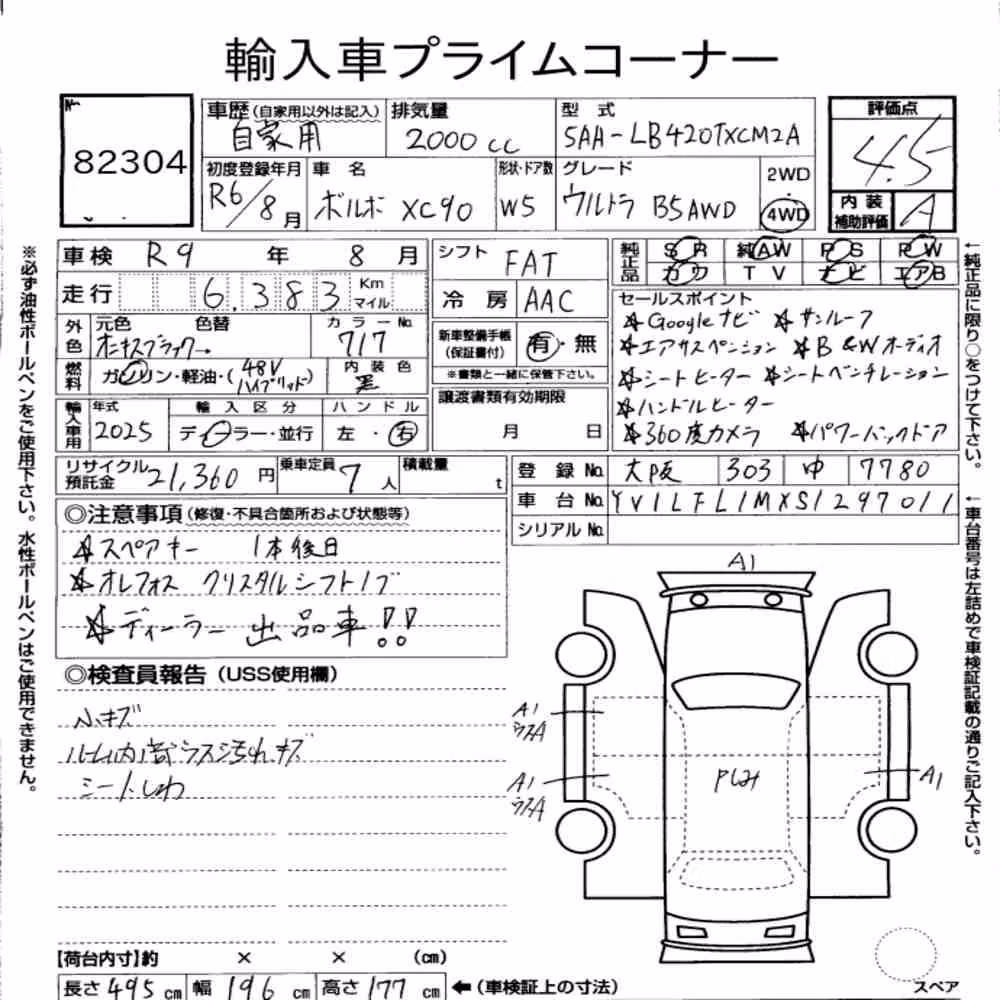 輸入車プライムコーナー
No.
82304
車歴 (自家用以外は記入) 排気量 型式
自家用 2000cc 5AA-LB420TXCM2A
初度登録年月 車名 形状・ドア数 グレード 2WD・4WD
R6/8月 ボルボ XC90 W5 ウルトラ B5AWD
評価点
4.5
内装補助評価 A
車検 R9年 8月
走行 6,383 Km マイル
外色 元色 色替 カラーNo.
オニキスブラック→ 717
燃料 ガソリン・軽油・(48Vハイブリッド) 内装色 黒
輸入車用 年式 輸入区分 ハンドル
2025 ディーラー・並行 左・右
シフト FAT
冷房 AAC
新車整備手帳(保証書付) 有・無
※書類と一緒に保管下さい。
譲渡書類有効期限
月 日
純正品 SR 純AW PS PW
カワ TV ナビ エアB
セールスポイント
☆Googleナビ ☆サンルーフ
☆エアサスペンション ☆B&Wオーディオ
☆シートヒーター ☆シートベンチレーション
☆ハンドルヒーター
☆360度カメラ ☆パワーバックドア
リサイクル預託金 21,360円 乗車定員 7人 積載量 t
登録No. 大阪 303 ゆ 7780
車台No. YV1LFL1MXS1297011
シリアルNo.
◎注意事項(修復・不具合箇所および状態等)
☆スペアキー 1本後日
☆オレフォス クリスタルシフトノブ
☆ディーラー出品車!!
◎検査員報告(USS使用欄)
小キズ
ルーム内部ラスジ汚れ、キズ
シートしわ
A1
A1
ウスA
A1
ウスA
A1
スペア
【荷台内寸】約 × × (cm)
長さ495cm 幅196cm 高さ177cm ←(車検証上の寸法)
※必ず油性ボールペンをご使用下さい。水性ボールペンはご使用できません。
←純正品に限り○をつけて下さい。
←車台番号は左詰めで車検証記載の通りご記入下さい。